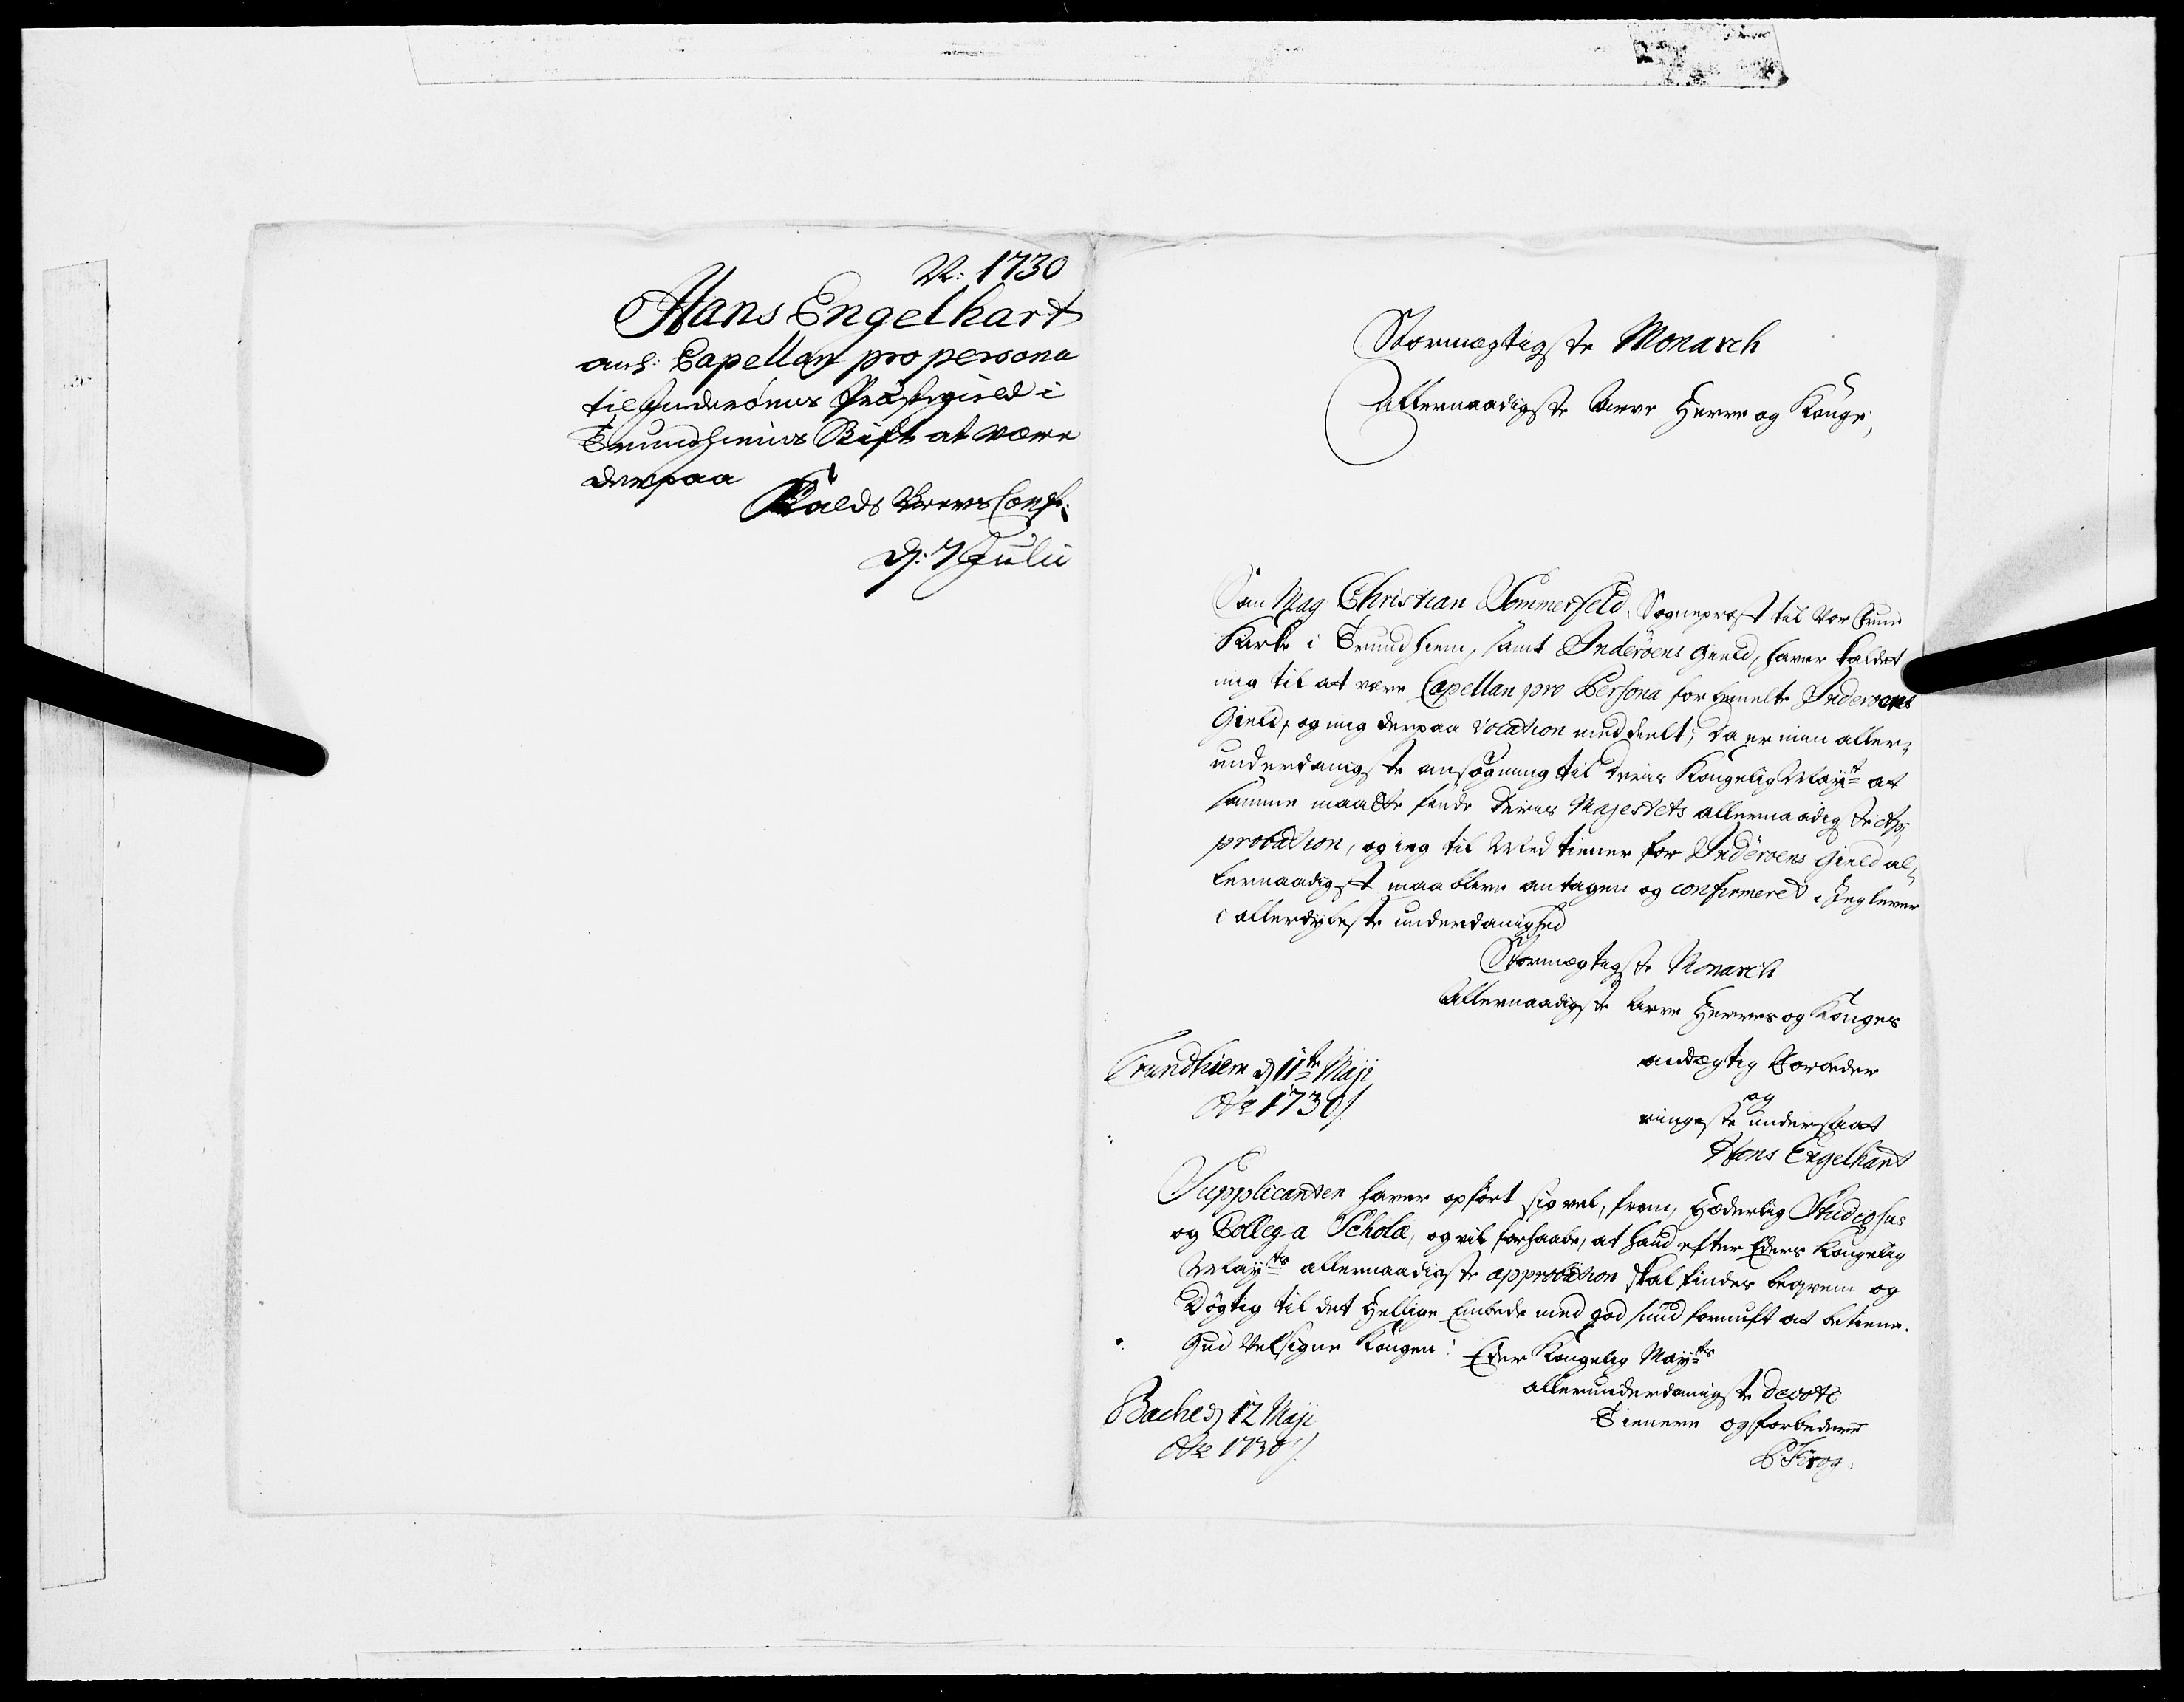 N: 1730
Hans Engelhart
ans: Capellan pro persona
til Inderöens Præstegield i
Trundhiems Stift at være
derpaa
Kalds Brevs Conf:
d: 7 Julii
Stormægtigste Monarch
Allernaadigste Arve Herre og Konge,
Som Mag Christian Sommerfeld, Sognepræst til Vor Frue
Kirke i Trundhiem, samt Inderöens Gield, haver kaldet
mig til at være Capellan pro Persona for bemelte Inderoens
Gield, og mig derpaa vocation meddeelt; Da er min aller,
underdanigste ansøgning til Deris Kongelig Mayt at
samme maatte finde Deris Majestets allernaadigste Ap,
probation, og ieg til Medtiener for Inderoens Gield al,
lernaadigst maa blive antagen og confirmeret, Jeg lever
i allerdybeste underdanighed
Stormægtigste Monarch
Allernaadigste Arve Herres og Konges
Trundhiem d 11te Maji
Ao 1730/.
andægtig Forbeder
og
ringeste undersaat
Hans Engelhart
Supplicanten haver opført sig vel, from, Hæderlig Studiosus
og Collega Scholæ, og vil forhaabe, at hand efter Eders Kongelig
Mayts allernaadigste approbation skal findes beqvem og
Døgtig til det Hellige Embede med god sund fornuft at betiene.
Gud Velsigne Kongen!
Eder Kongelig Mayts
allerunderdanigste devote
Tienere og forbedere
Bache d 12 Maji
Ao 1730/.